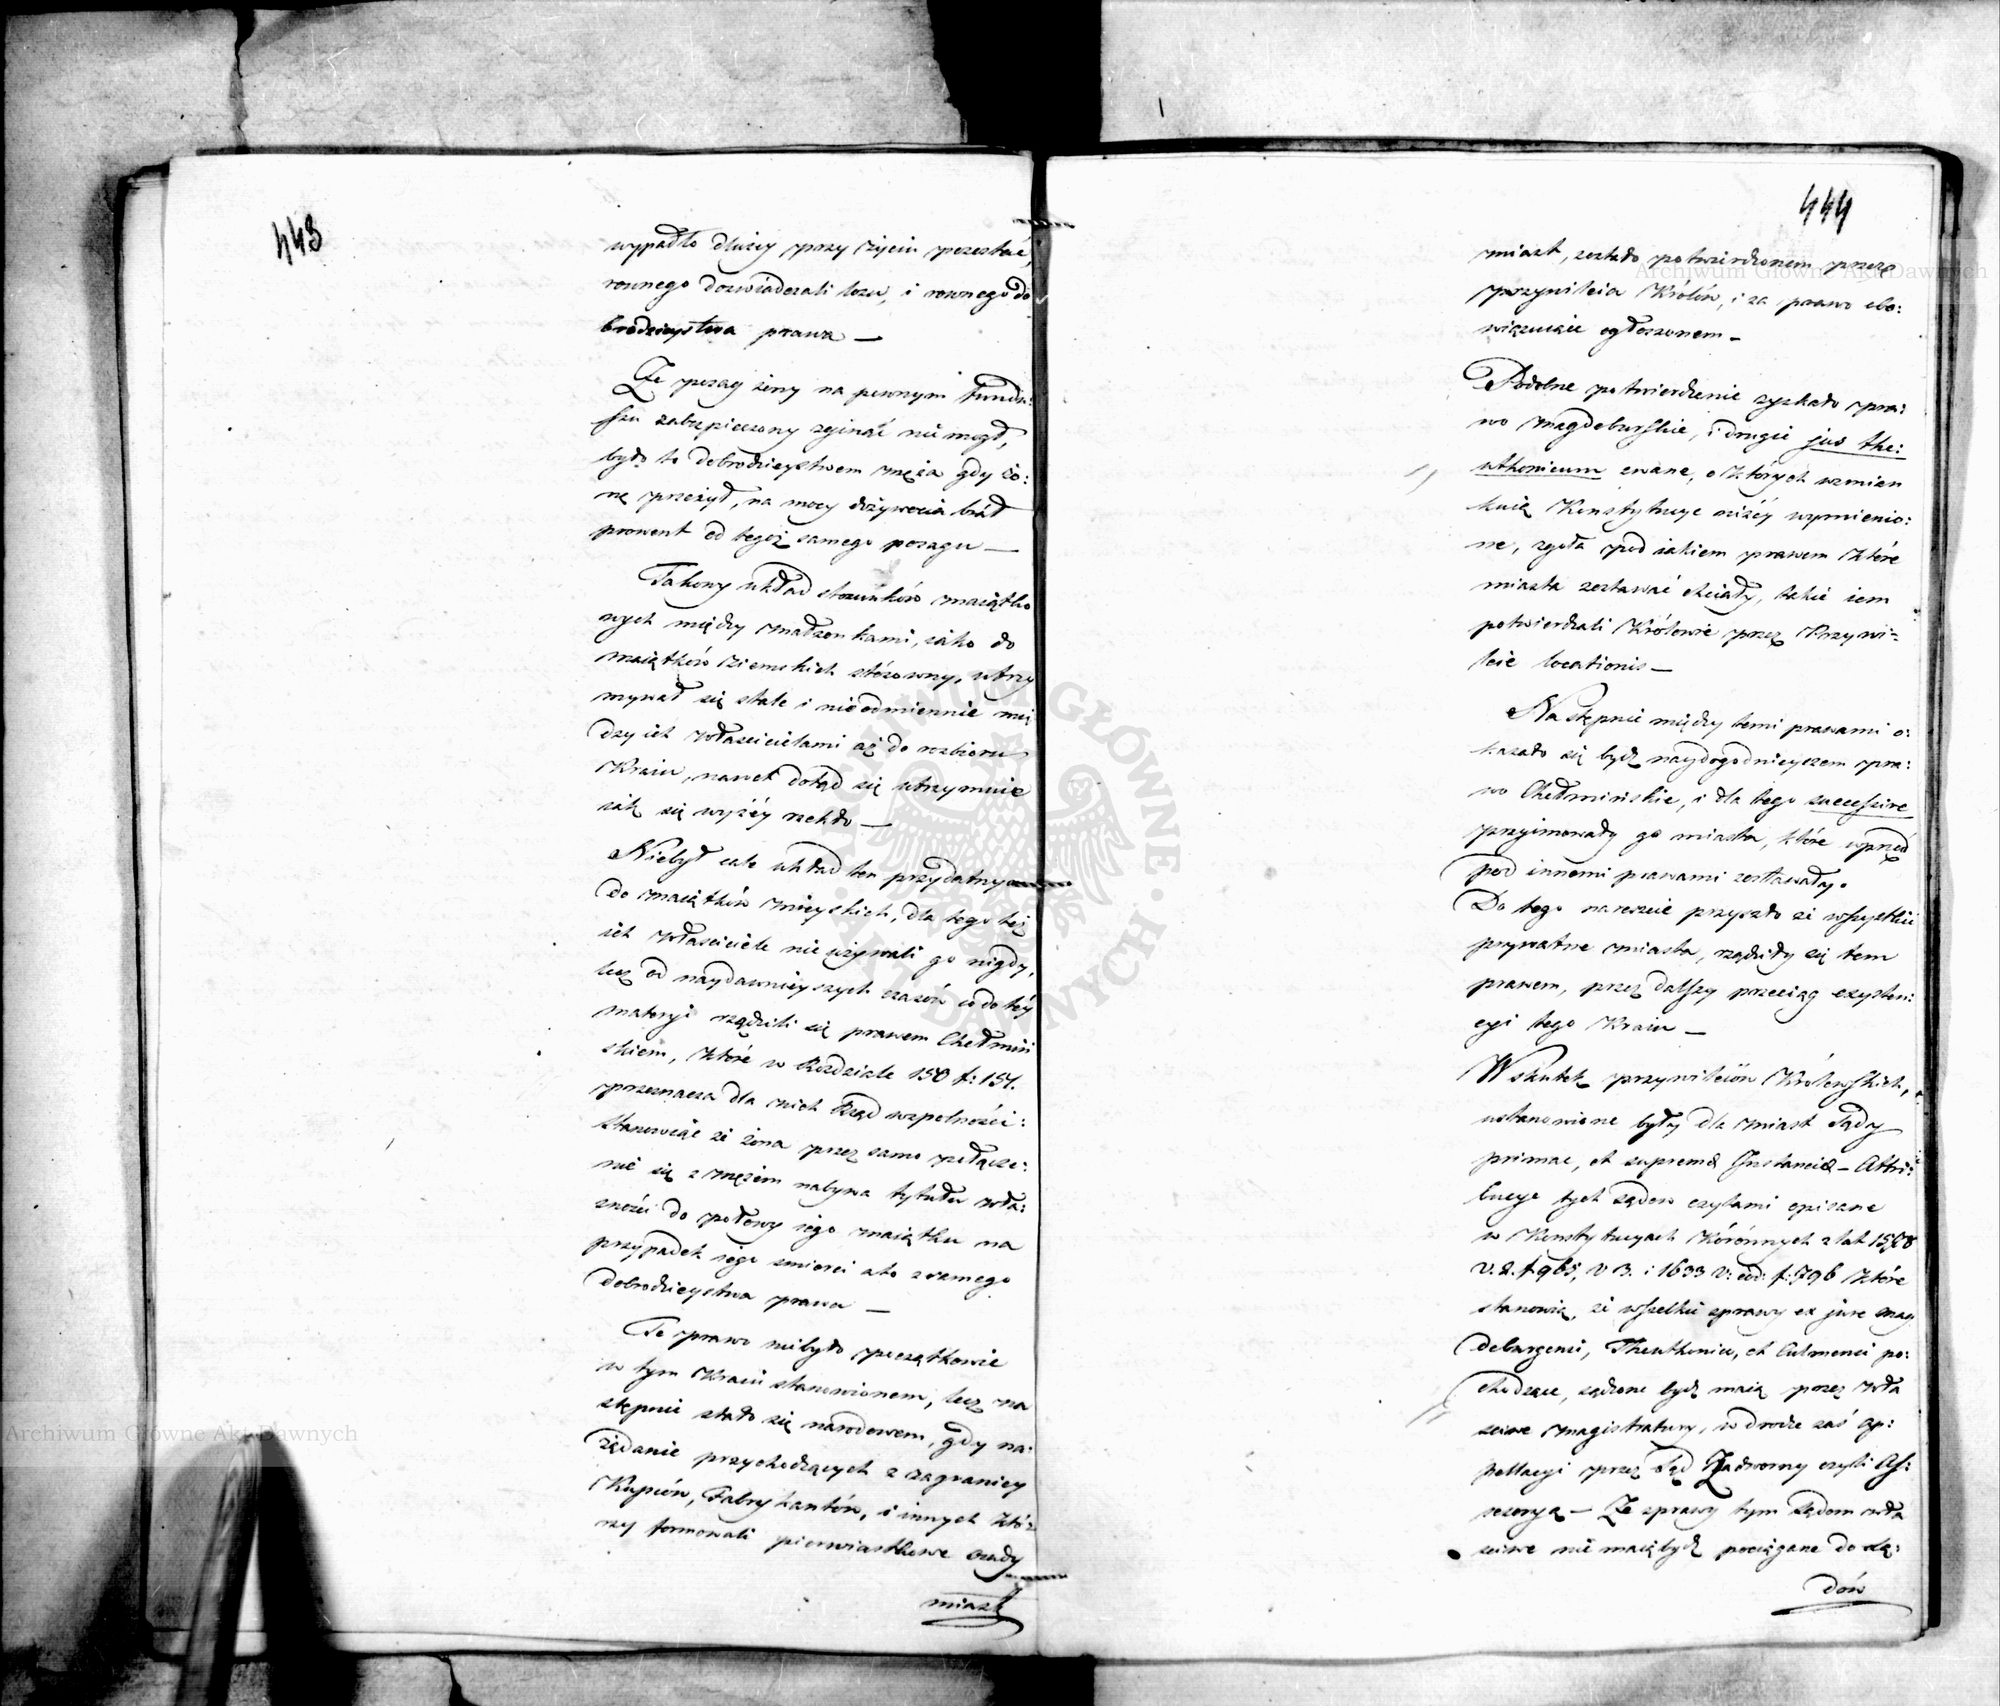 443
wypadło dłużey przy życiu pozostać,
rownego doświadczali losu, i rownego do
brodzieystwa prawa —
Że posag żony na pewnym fundu:
szu zabezpieczony zginąć nie mogł,
było to dobrodzieystwem męża gdy żo:
nę przeżył, na mocy dożywocia brał
prowent od tegoż samego posagu —
Takowy układ stosunków maiątko
wych między małżonkami, iako do
maiątków ziemskich stósowny, utrzy
mywał się stale i nieodmiennie mię
dzy ich właścicielami aż do rozbioru
Kraiu, nawet dotąd się utrzymuie
iak się wyżéy rzekło —
Niebył cale układ ten przydatny
do maiątków mieyskich, dla tego też
ich właściciele nie używali go nigdy,
lecz od naydawnieyszych czasów co do téy
materyi rządzili się prawem Chełmiń
skiem, które w Rozdziale 150 f: 151.
przeznacza dla nich Rząd wspolności:
Stanowiąc że żona przez samo połącze:
nie się z mężem nabywa tytułu wła:
sności do połowy iego maiątku na
przypadek iego śmierci a to z samego
dobrodzieystwa prawa —
Te prawo niebyło początkowie
w tym Kraiu stanowionem, lecz na
stępnie stało się narodowem, gdy na:
żądanie przychodzących z zagranicy
Kupców, Fabrykantów, i innych któ:
rzy formowali pierwiastkowe osady
miast
444
miast, zostało potwierdzonem przez
przywileia Królów, i za prawo obo:
wiązuiące ogłoszonem —
Podobne potwierdzenie zyskało pra:
wo Magdeburskie, i drugie jus the:
uthonicum zwane, o których wzmian
kuią Konstytucye niżéy wymienio:
ne, zgoła pod iakiem prawem które
miasta zostawać chciały, takie iem
potwierdzali Królowie przez Przywi=
leie locationis —
Następnie między temi prawami o:
kazało się bydź naydogodnieyszem pra:
wo Chełmińskie, i dla tego successive
przyimowały go miasta, które wprzód
pod innemi prawami zostawały.
Do tego nareszcie przyszło że wszystkie
prywatne miasta, rządziły się tem
prawem, przez dalszy przeciąg exysten:
cyi tego Kraiu —
W skutek przywileiów Królewskich,
ustanowione były dla miast Sądy
primae, et supremae Instanciae — Attri:
bucye tych sądow czytami opisane
w Konstytucyach Kórónnych z lat 1578
v. 2. f 965, v 3. i 1633 v: eod: f: 796 które
stanowią, że wszelkie sprawy ex jure mag
deburgensi, Theuthonico, et Culmensi po:
chodzące, sądzone bydź maią przez wła
ściwe Magistratury, w drodze zaś ap:
pellacyi przez Sąd Zadworny czyli As:
sesoryą — Że sprawy tym Sądom wła
ściwe nie maią bydź pociągane do są:
dów
Archiwum Główne Akt Dawnych
Archiwum Główne Akt Dawnych
ARCHIWUM GŁÓWNE · AKT DAWNYCH ·